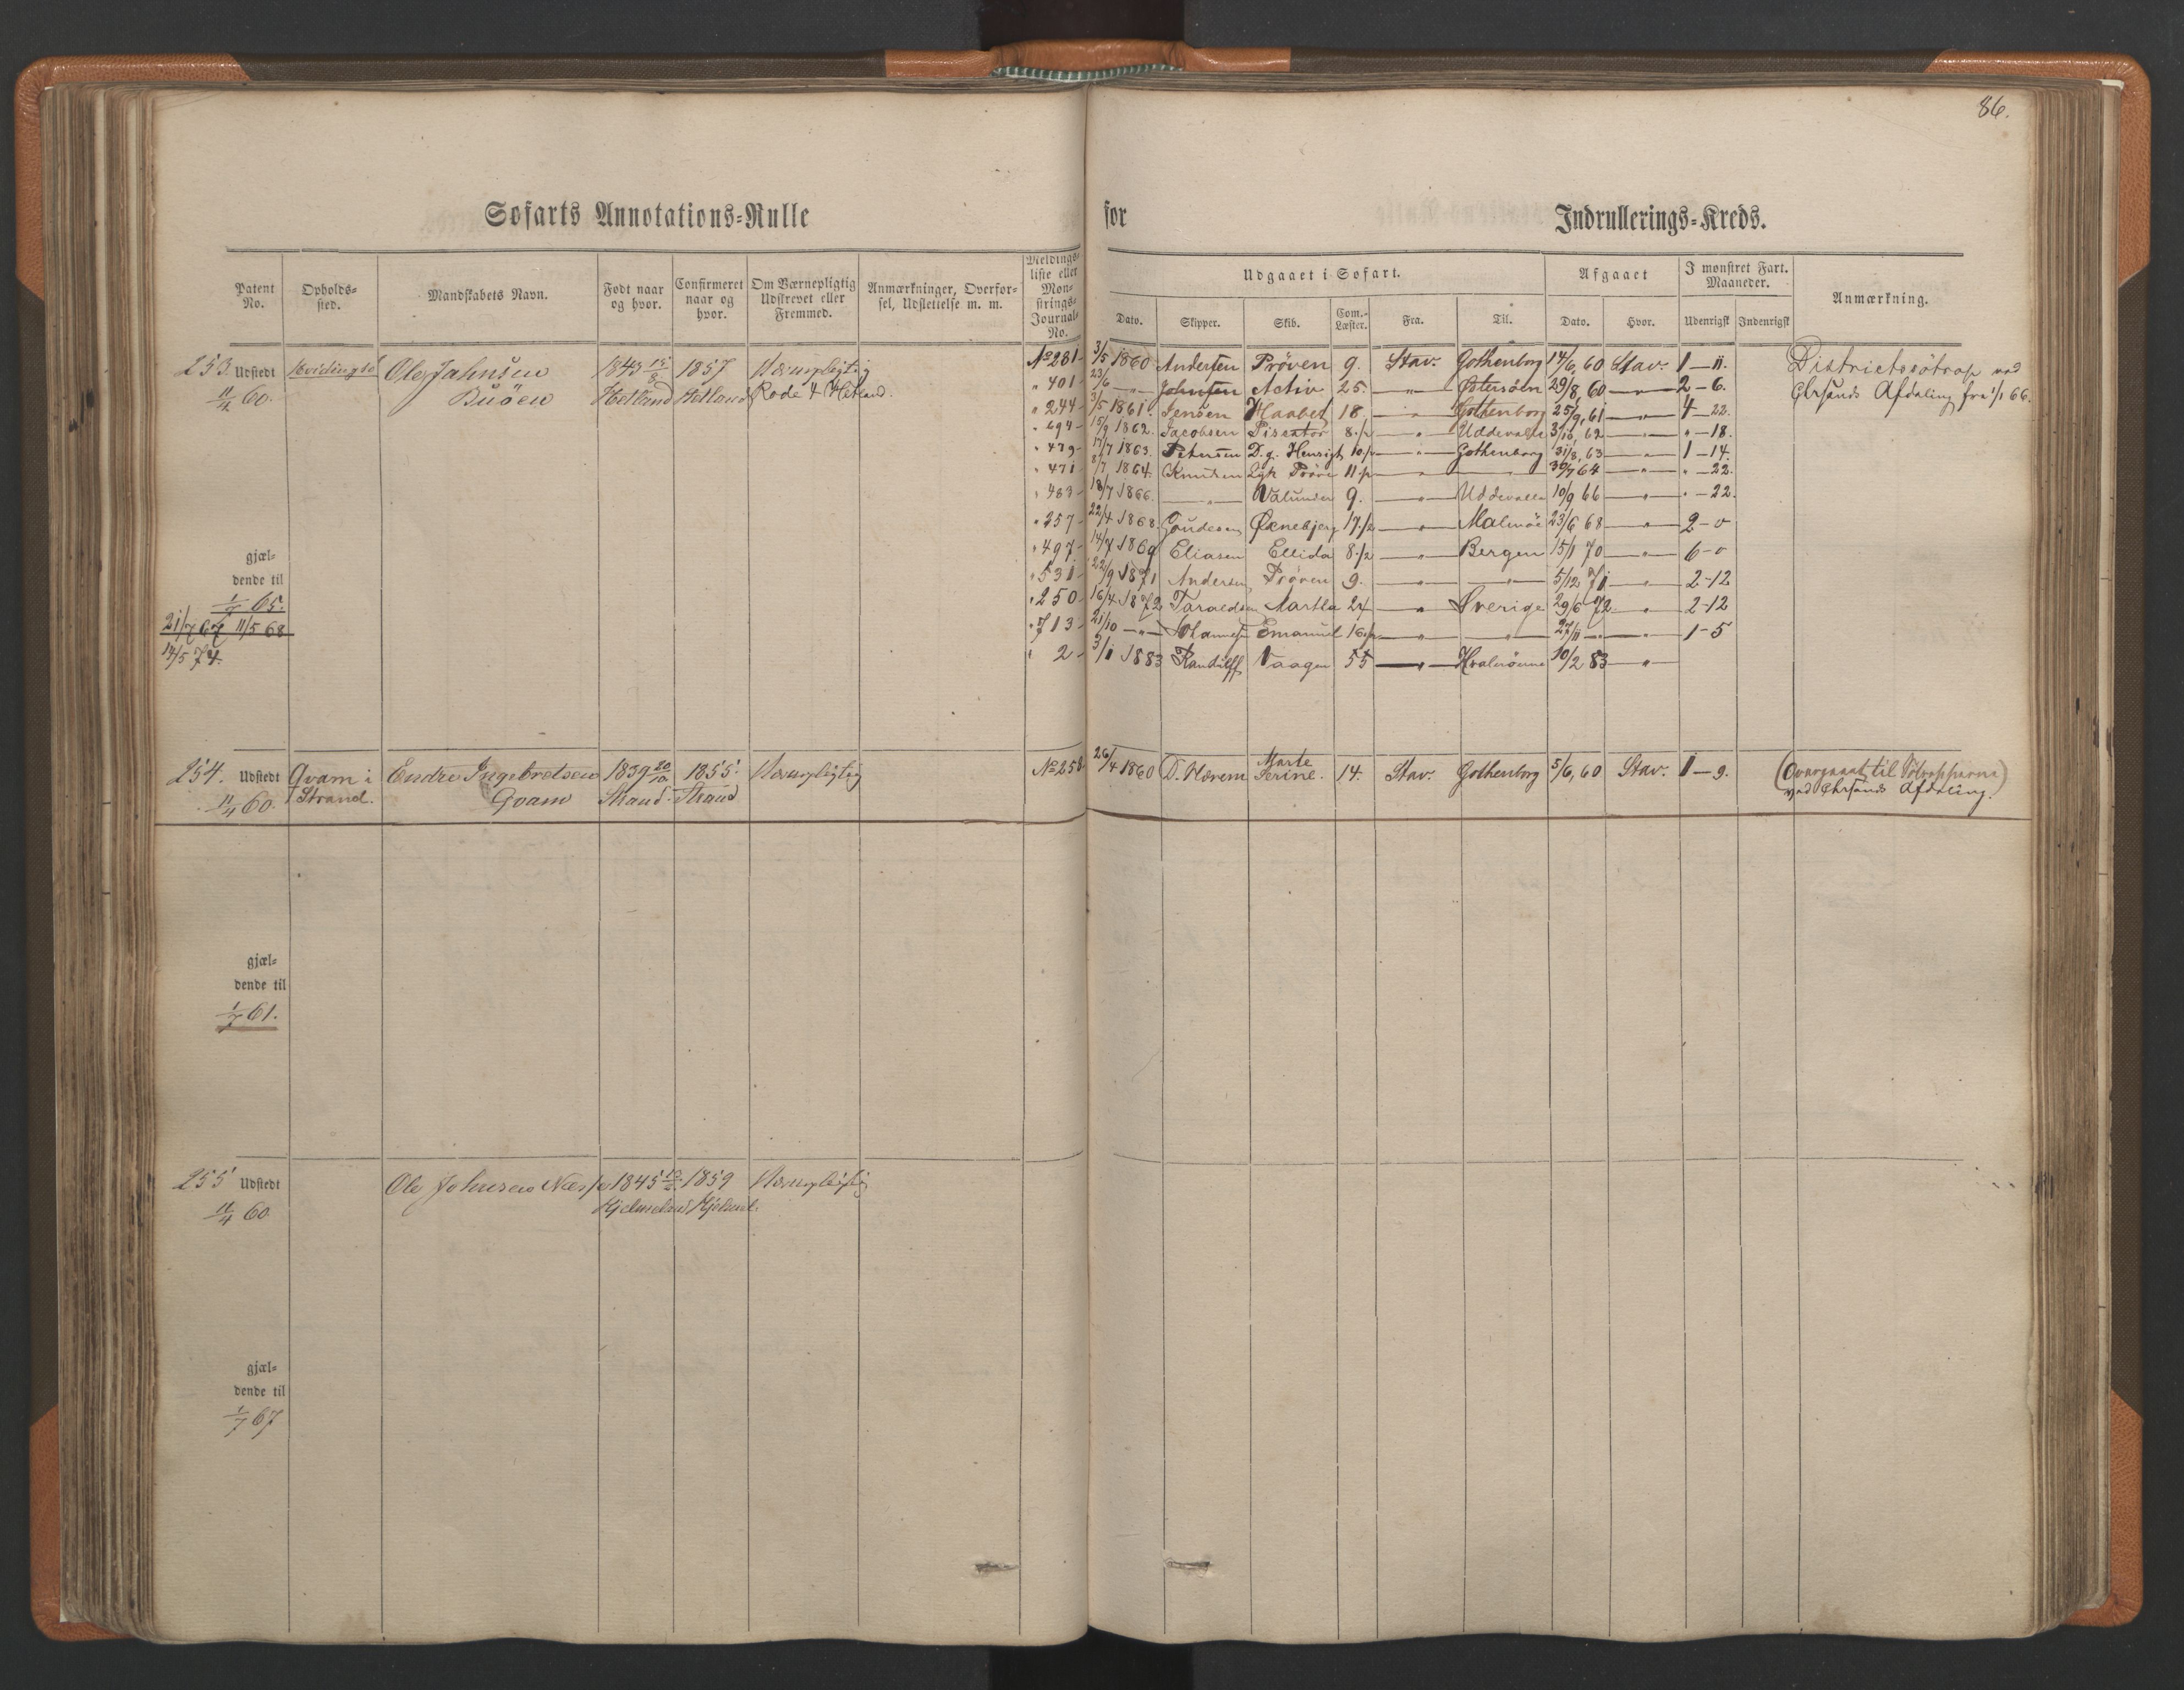 86.
Søfarts Annotations-Rulle for Indrullerings-Kreds.
Patent No.
Opholds-sted.
Mandskabets Navn.
Født naar og hvor.
Confirmeret naar og hvor.
Om Værnepligtig Udskrevet eller Fremmed.
Anmærkninger, Overfør-sel, Udslettelse m. m.
Meldings-liste eller Møn-strings-Journal-No.
Udgaaet i Søfart.
Dato. Skipper. Skib. Com.-Læster. Fra. Til.
Afgaaet
Dato. Hvor.
I mønstret Fart. Maaneder.
Udenrigsk Indenrigsk
Anmærkning.
253. Udstedt Ole Johnsen 1843 1857 Værnepligtig
11/4 60. Buöen Hetland Hetland Rode 4 Hetland.
gjæl-
dende til
1/7 65.
21/7 67 11/5 68
14/5 74.
No 281 - 3/5 1860 Andersen Pröven 9. Stav. Gothenborg 14/6, 60 Stav. 1 - 11. Districtssötrop ved
" 401 - 23/6 - " - Johnsen Activ 25. - " - Østersöen 29/8, 60 - " - 2 - 6. Chrsands Afdeling fra 1/1 66.
" 244 - 3/5 1861. Jensen Haabet 18. - " - Gothenborg 25/9, 61 - " - 4 - 22.
" 694 - 15/9 1862. Jacobsen Piscator 8 1/2 - " - Uddevalla 3/10, 62 - " - " - 18.
" 479 - 17/7 1863. Petersen D. g. Hensigt 10 1/2 - " - Gothenborg 31/8, 63 - " - 1 - 14.
" 471 - 8/7 1864. Knudsen Lyk Pröve 11 1/2 - " - 30/7 64 - " - " - 22.
" 483 - 18/7 1866. - " - Valunder 9. - " - Uddevalla 10/9 66 - " - " - 22.
" 257 - 22/4 1868. Gaudesen Øxnebjerg 17 1/2 - " - Malmöe 23/6 68 - " - 2 - 0
" 497 - 14/7 1869 Eliasen Ellida 8 1/2 - " - Bergen 15/1 70 - " - 6 - 0
" 531 - 22/9 1871 Andersen Pröven 9. - " - - " - 5/12 71 - " - 2 - 12
" 250 - 16/4 1872 Taraldsen Martha 24 - " - Sverige 29/6 72 - " - 2 - 12
" 713 - 21/10 - " - Johannesen Emanuel 16 1/2 - " - - " - 27/11 - " - 1 - 5
" 2 - 3/1 1883 Randulff Vaagen 55 - " - 10/2 83 - " -
254. Udstedt Qvam i Endre Ingebretsen 1839 20/10 1855. Værnepligtig
11/4 60. Strand. Qvam Strand. Strand
No 258 26/4 1860 D. Horem Marte Serine. 14. Stav. Gothenborg 5/6, 60 Stav. 1 - 9. (Overgaaet til Sötropperne
ved Chrsands Afdeling.)
gjæl-
dende til
1/7 61.
255 Udstedt Ole Johnsen 1845 1859 Værnepligtig
11/4 60. Hjelmeland Hjelmel.
gjæl-
dende til
1/7 67